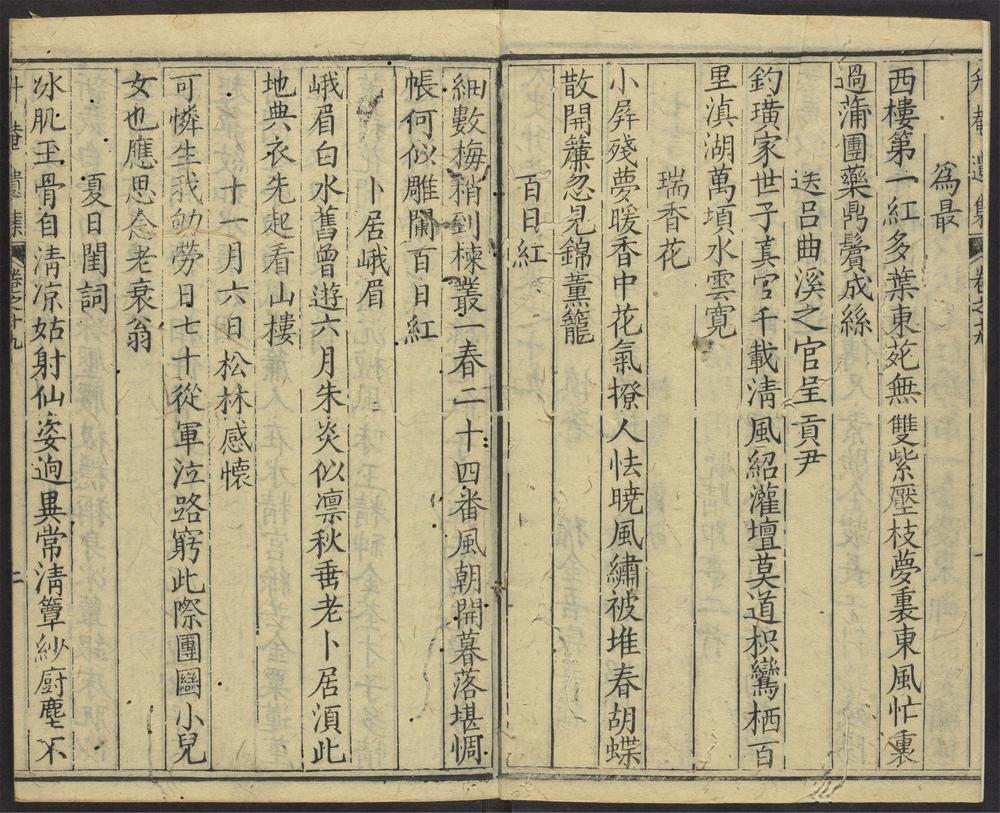 升菴遺集 卷之十九
為最
西樓第一紅多葉東苑無雙紫壓枝夢裏東風忙裏
過蒲團藥鼎鬢成絲
送呂曲溪之官呈貢尹
釣璜家世子真宮千載淸風紹灌壇莫道枳鸞栖百
里滇湖萬頃水雲寬
瑞香花
小屏殘夢暖香中花氣撩人怯曉風繡被堆春胡蝶
散開簾忽見錦薰籠
百日紅
細數梅稍到楝叢一春二十四番風朝開暮落堪惆
帳何似雕闌百日紅
卜居峨眉
峨眉白水舊曾遊六月朱炎似凛秋垂老卜居湏此
地典衣先起看山樓
十一月六日松林感懷
可憐生我劬勞日七十從軍泣路窮此際團圞小兒
女也應思念老衰翁
夏日閨詞
冰肌玉骨自淸凉姑射仙姿逈異常淸簟紗厨塵不
升菴遺集 卷之十九 二